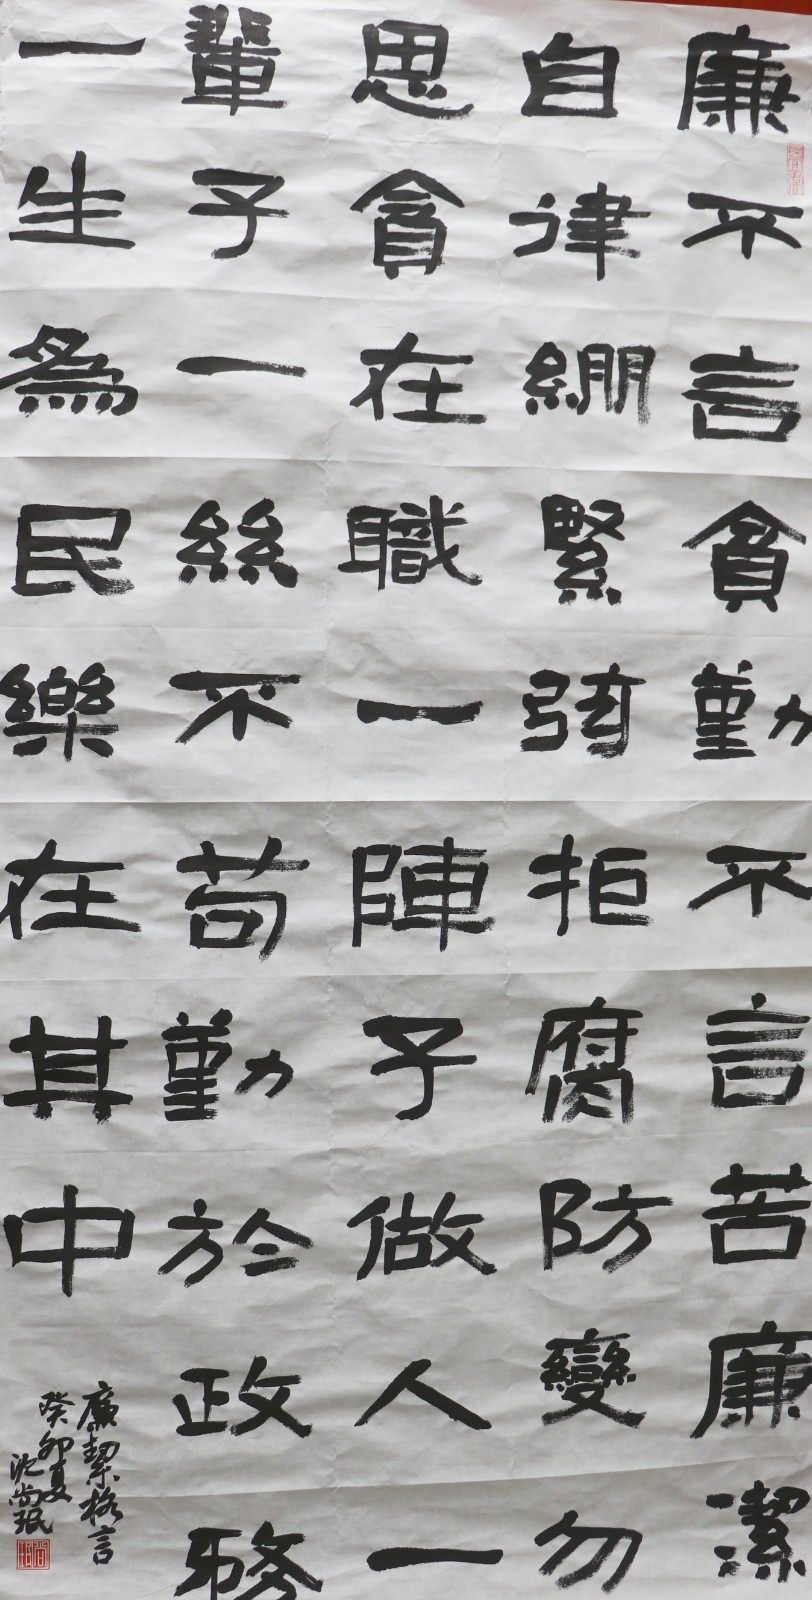 廉不言貪勤不言苦廉潔
自律綳緊弦拒腐防變勿
思貪在職一陣子做人一
輩子一絲不苟勤於政務
一生為民樂在其中
廉潔格言
癸卯夏
沈尚珉